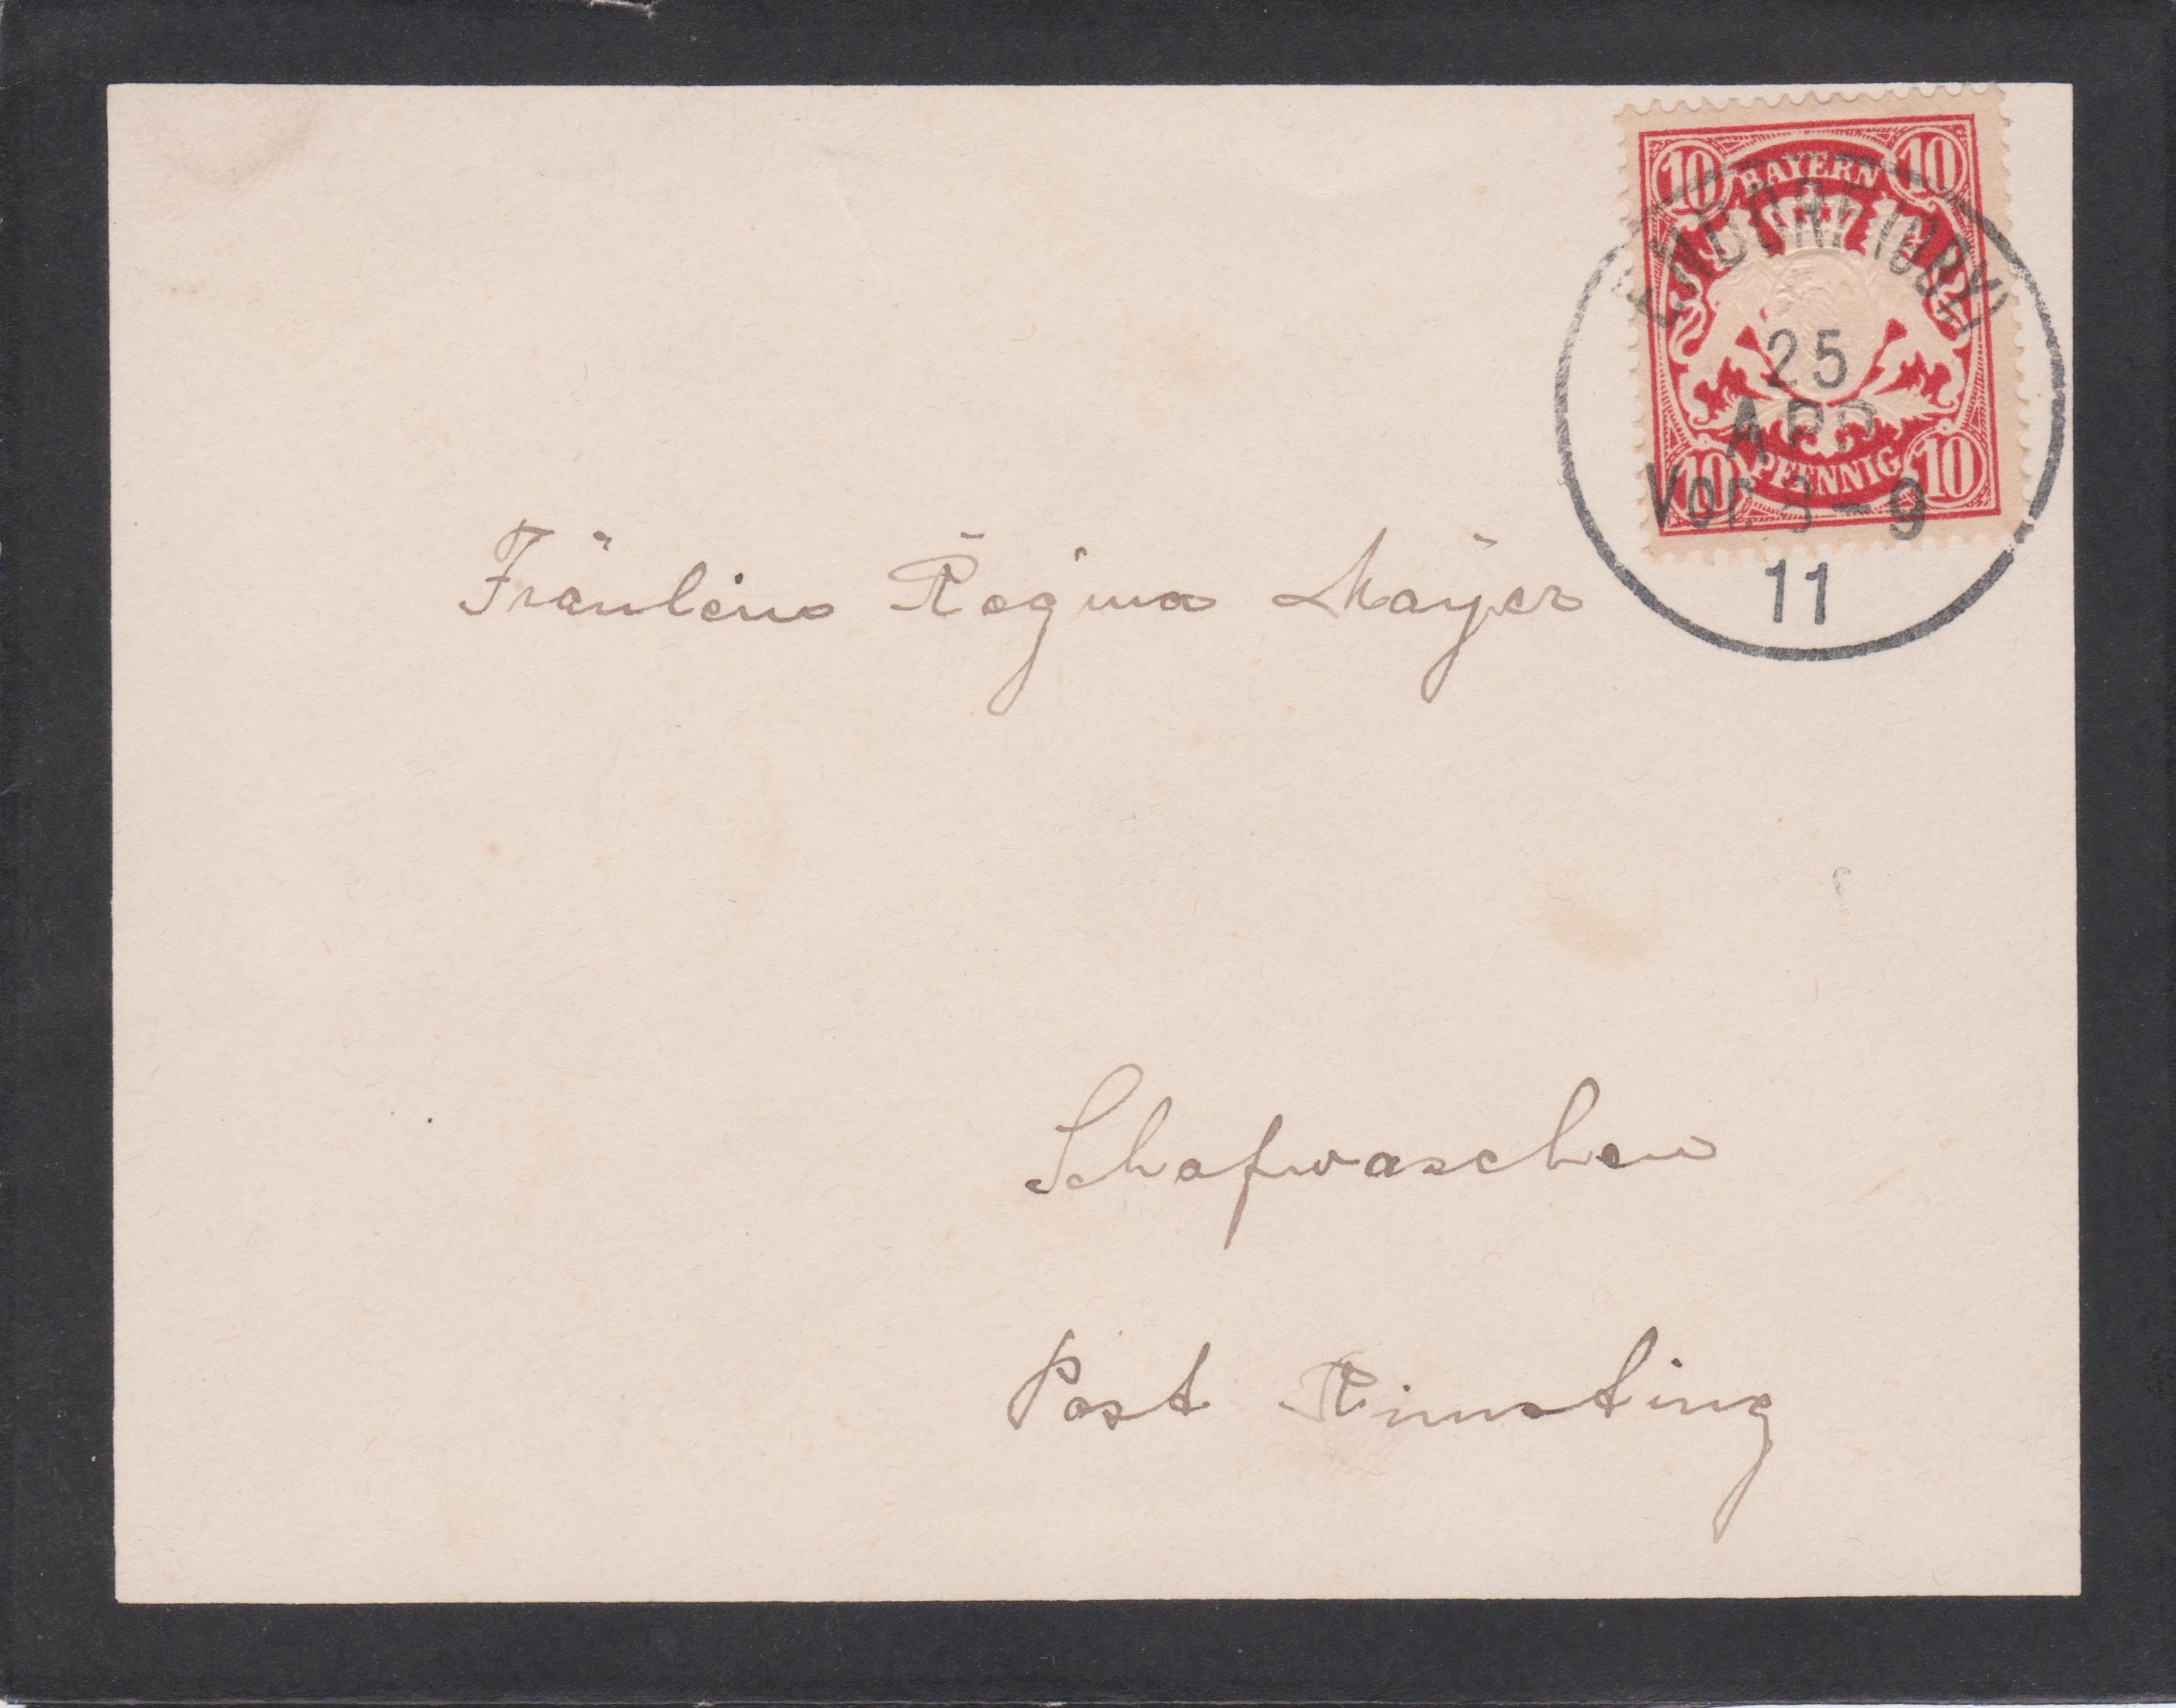 10 BAYERN 10
ENDORF (OBY)
25
APR
Vor. 8-9
11
10 PFENNIG 10
Fräulein Regina Mayer
Schafwaschen
Post Rimsting